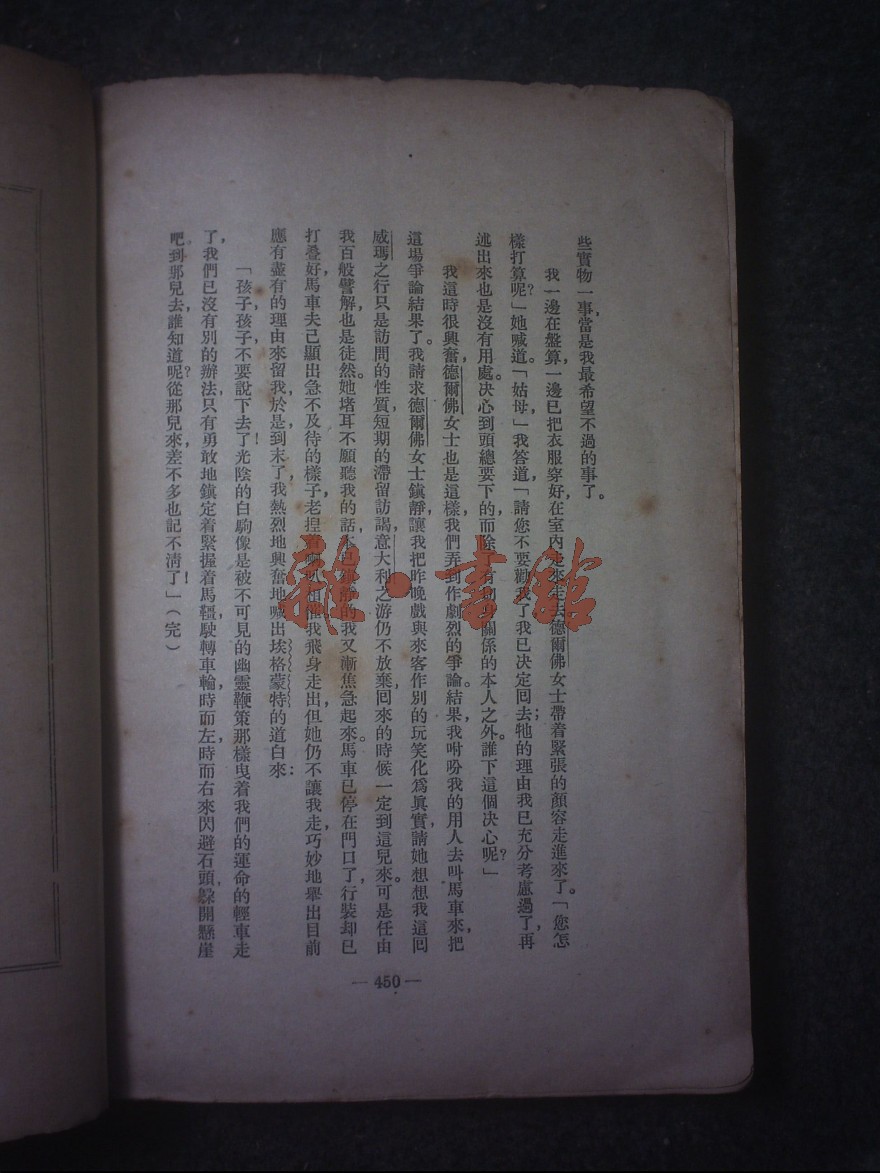 些實物一事,當是我最希望不過的事了。
我一邊在盤算,一邊已把衣服穿好,在室內走來走去。德爾佛女士帶着緊張的顏容走進來了。「您怎
樣打算呢?」她喊道。「姑母,」我答道「請您不要勸我了,我已決定回去;牠的理由我已充分考慮過了,再
述出來也是沒有用處。決心到頭總要下的,而除了有切身關係的本人之外,誰下這個決心呢?」
我這時很興奮,德爾佛女士也是這樣,我們弄到作劇烈的爭論。結果,我吩吩我的用人去叫馬車來,把
這場爭論結果了。我請求德爾佛女士鎮靜,讓我把昨晚戲與來客作別的玩笑化爲眞實,請她想想我這回
威瑪之行只是訪問的性質,短期的滯留訪謁,意大利之游仍不放棄,回來的時候一定到這兒來。可是任由
我百般譬解,也是徒然。她堵耳不願聽我的話,本已 靜的我又漸焦急起來。馬車已停在門口了,行裝却已
打叠好,馬車夫已顯出急不及待的樣子,老揑 喇叭相催,我飛身走出,但她仍不讓我走,巧妙地舉出目前
應有盡有的理由來留我,於是,到末了,我熱烈地興奮地喊出埃格蒙特的道白來:
「孩子,孩子,不要說下去了!光陰的白駒像是被不可見的幽靈鞭策那樣曳着我們的運命的輕車走
了,我們已沒有別的辦法,只有勇敢地鎮定着緊握着馬韁,駛轉車輪,時而左,時而右來閃避石頭,躱開懸崖
吧。到那兒去,誰知道呢?從那兒來,差不多也記不淸了!」(完)
— 450 —
雜·書館